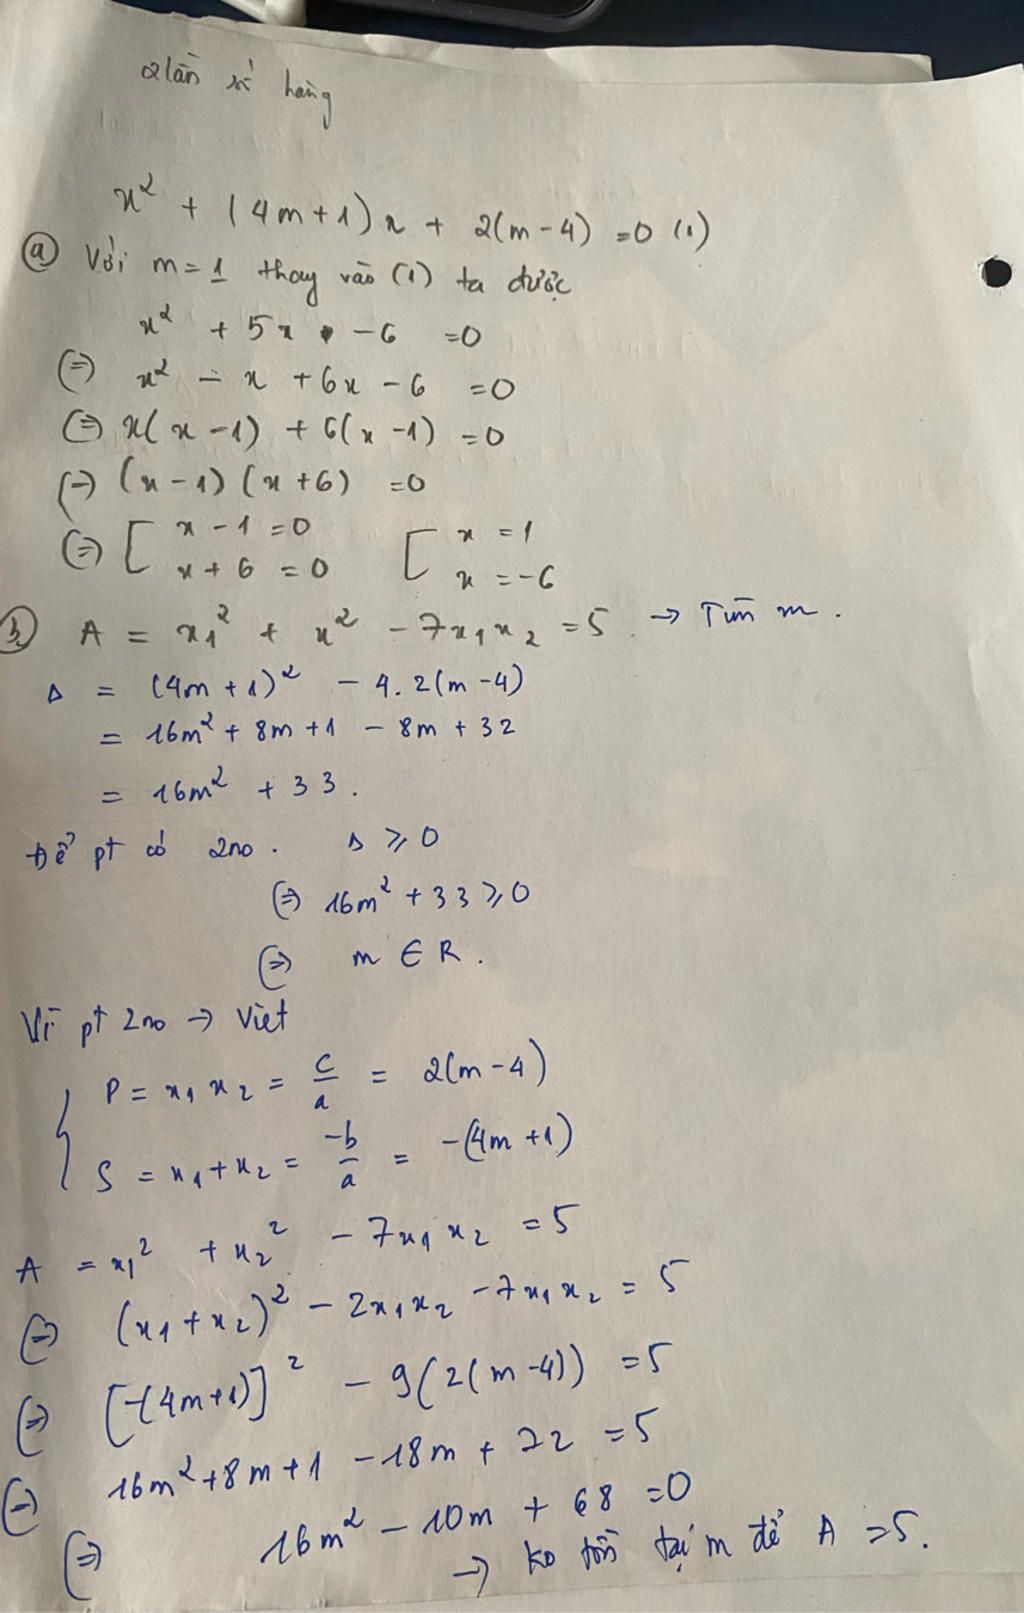 2 lần
x² + (4m+1)x + 2(m-4) = 0 (1)
a) Với m = 1 thay vào (1) ta được
x² + 5x - 6 = 0
(=) x² - x + 6x - 6 = 0
(=) x(x-1) + 6(x-1) = 0
(=) (x-1)(x+6) = 0
(=) [ x - 1 = 0 [ x = 1
x + 6 = 0 x = -6
b) A = x₁² + x² - 7x₁x₂ = 5 → Tìm m.
Δ = (4m+1)² - 4.2(m-4)
= 16m² + 8m + 1 - 8m + 32
= 16m² + 33.
Để pt có 2no. Δ ⩾ 0
(=) 16m² + 33 ⩾ 0
(=) m ∈ R.
Vì pt 2no → Viet
{ P = x₁x₂ = c/a = 2(m-4)
S = x₁+x₂ = -b/a = -(4m+1)
A = x₁² + x₂² - 7x₁x₂ = 5
(=) (x₁+x₂)² - 2x₁x₂ - 7x₁x₂ = 5
(=) [-(4m+1)]² - 9(2(m-4)) = 5
(=) 16m² + 8m + 1 - 18m + 72 = 5
(=) 16m² - 10m + 68 = 0
→ ko tồn tại m để A = 5.